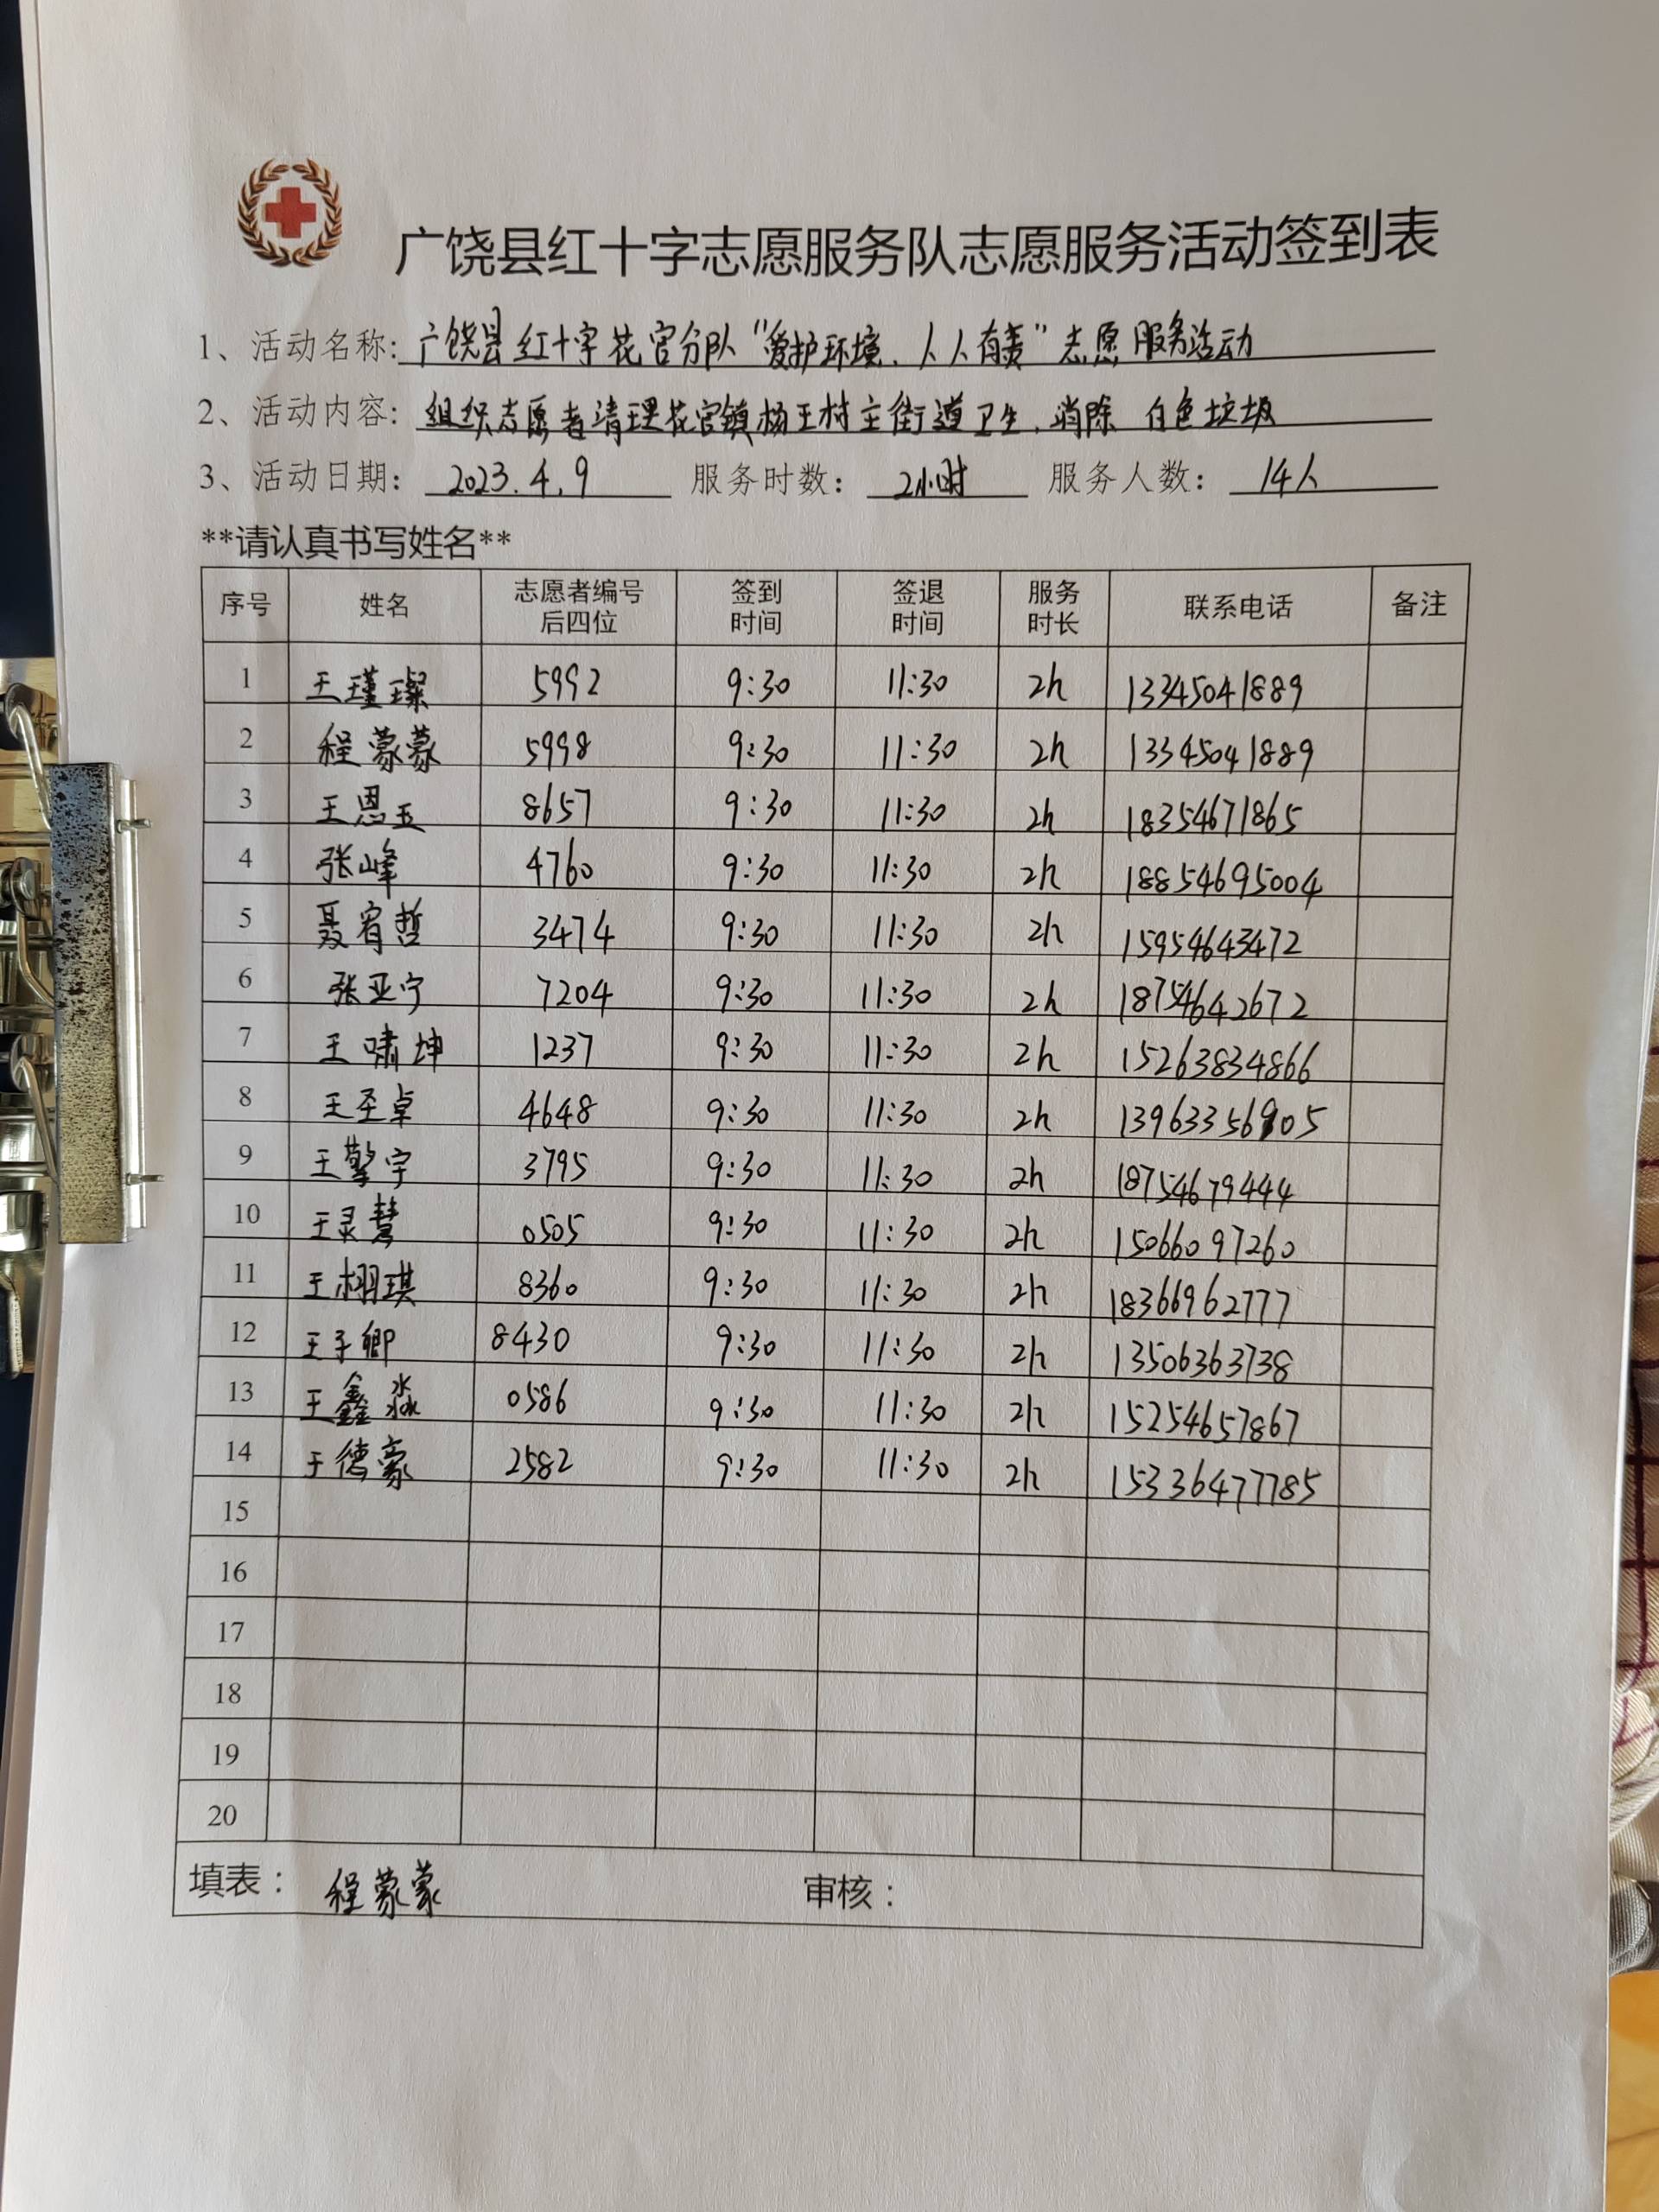 广饶县红十字志愿服务队志愿服务活动签到表
1、活动名称: 广饶县红十字花官分队“爱护环境、人人有责”志愿服务活动
2、活动内容: 组织志愿者清理花官镇杨王村主街道卫生、消除白色垃圾
3、活动日期: 2023.4.9 服务时数: 2小时 服务人数: 14人
**请认真书写姓名**
序号 姓名 志愿者编号后四位 签到时间 签退时间 服务时长 联系电话 备注
1 王瑾璨 5992 9:30 11:30 2h 13345041889
2 程蒙蒙 5998 9:30 11:30 2h 13345041889
3 王恩玉 8657 9:30 11:30 2h 18354671865
4 张峰 4760 9:30 11:30 2h 18854695004
5 聂宥哲 3474 9:30 11:30 2h 15954643472
6 张亚宁 7204 9:30 11:30 2h 18754642672
7 王啸坤 1237 9:30 11:30 2h 15263834866
8 王圣卓 4648 9:30 11:30 2h
9 王擎宇 3795 9:30 11:30 2h 18754679444
10 王灵慧 0505 9:30 11:30 2h 15066097260
11 王栩琪 8360 9:30 11:30 2h 18366962777
12 王子卿 8430 9:30 11:30 2h 13506363738
13 王鑫淼 0586 9:30 11:30 2h 15254657867
14 王德豪 2582 9:30 11:30 2h 15336477785
15
16
17
18
19
20
填表: 程蒙蒙 审核: